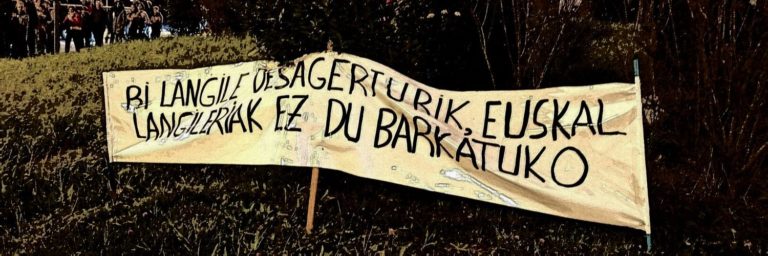 BI LANGILE DESAGERTURIK, EUSKAL
LANGILERIAK EZ DU BARKATUKO